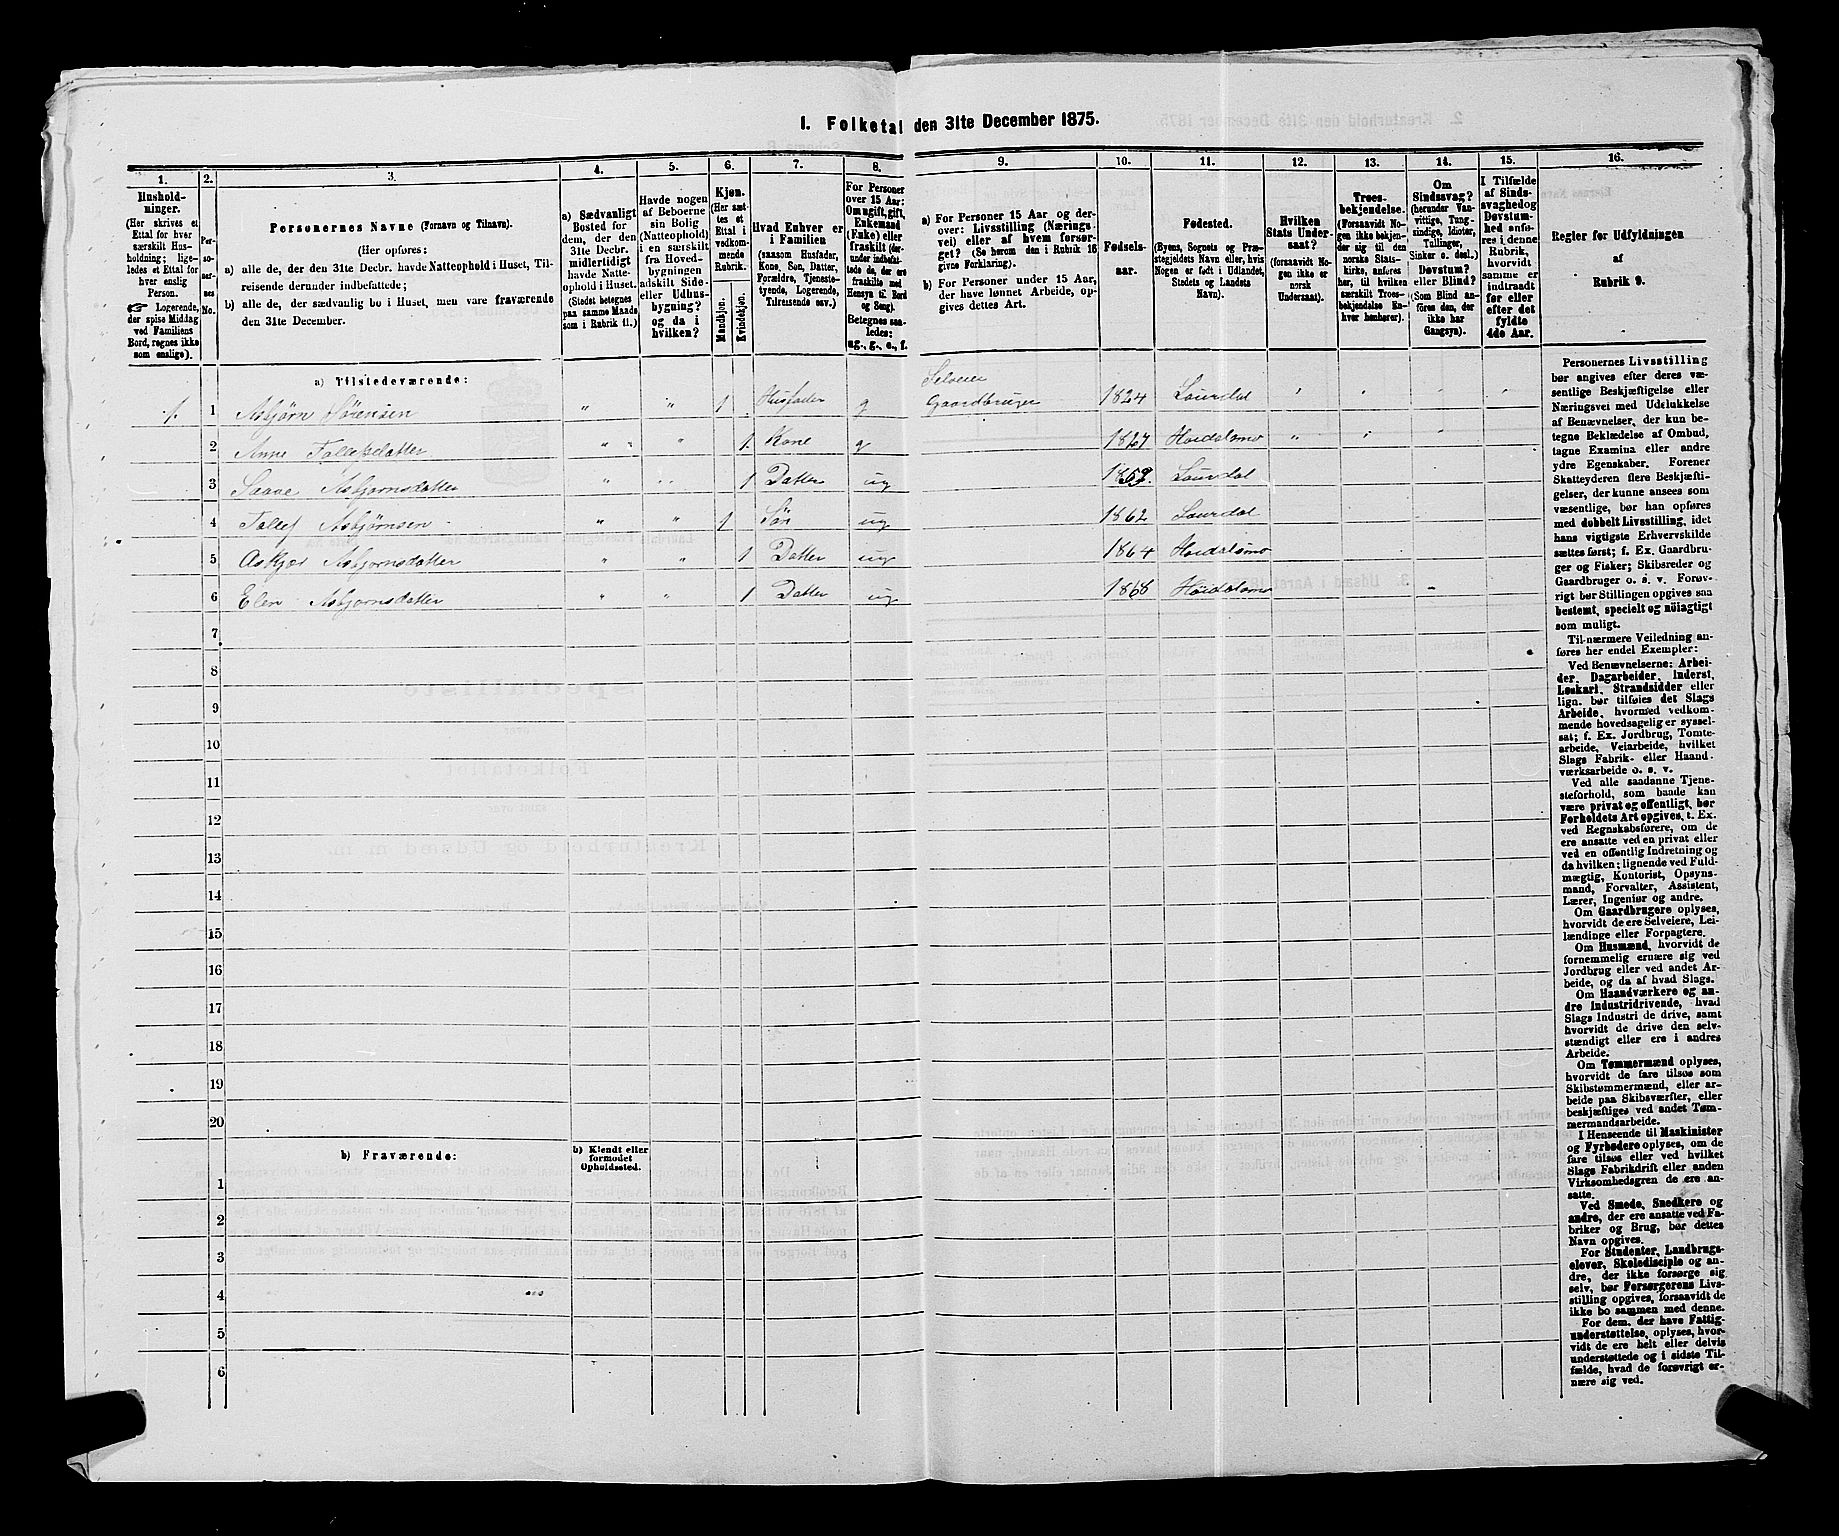 1. Folketal den 31te December 1875.
1. 2. 3. 4. 5. 6. 7. 8. 9. 10. 11. 12. 13. 14. 15. 16.
Hushold-
ninger.
(Her skrives et
Ettal for hver
særskilt Hus-
holdning; lige-
ledes et Ettal for
hver enslig
Person.
☞ Logerende,
der spise Middag
ved Familiens
Bord, regnes ikke
som enslige).
Per-
so-
ner-
nes
No.
Personernes Navne (Fornavn og Tilnavn).
(Her opføres:
a) alle de, der den 31te Decbr. havde Natteophold i Huset, Til-
reisende derunder indbefattede;
b) alle de, der sædvanlig bo i Huset, men vare fraværende
den 31te December.
a) Sædvanligt
Bosted for
dem, der den
31te Decbr.
midlertidigt
havde Natte-
ophold i Huset.
(Stedet betegnes
paa samme Maade
som i Rubrik 11.)
Havde nogen
af Beboerne
sin Bolig
(Natteophold)
i en særskilt
fra Hoved-
bygningen
adskilt Side-
eller Udhus-
bygning?
og da i
hvilken?
Kjøn.
(Her sæt-
tes et
Ettal i
vedkom-
mende
Rubrik.
Mandkjøn.
Kvindekjøn.
Hvad Enhver er
i Familien
(saasom Husfader,
Kone, Søn, Datter,
Forældre, Tjeneste-
tyende, Logerende,
Tilreisende osv.)
For Personer
over 15 Aar:
Om ugift, gift,
Enkemand
(Enke) eller
fraskilt (her-
under indbefat-
tede de, der ere
fraskilte med
Hensyn til Bord
og Seng).
Betegnes saa-
ledes:
ug., g., e., f.
a) For Personer 15 Aar og der-
over: Livsstilling (Nærings-
vei) eller af hvem forsør-
get? (Se herom den i Rubrik 16
givne Forklaring).
b) For Personer under 15 Aar,
der have lønnet Arbeide, op-
gives dettes Art.
Fødsels-
aar.
Fødested.
(Byens, Sognets og Præ-
stegjeldets Navn eller, hvis
Nogen er født i Udlandet,
Stedets og Landets
Navn).
Hvilken
Stats Under-
saat?
(forsaavidt No-
gen ikke er
norsk
Undersaat).
Troes-
bekjendelse.
(Forsaavidt No-
gen ikke bekjen-
der sig til den
norske Stats-
kirke, anføres
her, til hvilken
særskilt Troes-
bekjendelse En-
hver henhører).
Om
Sindssvag?
(herunder Van-
vittige, Tung-
sindige, Idioter,
Tullinger,
Sinker o. desl.)
Døvstum?
eller Blind?
(Som Blind an-
føres den, der
ikke har
Gangsyn).
I Tilfælde
af Sinds-
svaghed og
Døvstum-
hed anfø-
res i denne
Rubrik,
hvorvidt
samme er
indtraadt
før eller
efter det
fyldte
4de Aar.
Regler for Udfyldningen
af
Rubrik 9.
a) Tilstedeværende:
1. 1 Asbjørn Sørensen " " 1 Husfader g Selveier Gaardbruger 1824 Laurdal " " " "
2 Anne Tallefsdatter " " " 1 Kone g 1827 Hoidalsmo " " "
3 Saave Asbjornsdatter " " 1 Datter ug 1859. Laurdal
4 Tallef Asbjørnsen " " 1 Søn ug 1862 Laurdal
5 Askjer Asbjornsdatter " " 1 Datter ug 1864 Hoidalsmo
6 Elen Asbjornsdatter " " 1 Datter ug 1868 Hoidalsmo
7
8
9
10
11
12
13
14
15
16
17
18
19
20
b) Fraværende:
b) Kjendt eller
formodet
Opholdssted.
1
2
3
4
5
6
Personernes Livsstilling
bør angives efter deres væ-
sentlige Beskjæftigelse eller
Næringsvei med Udelukkelse
af Benævnelser, der kun be-
tegne Beklædelse af Ombud,
tagne Examina eller andre
ydre Egenskaber. Forener
Skatteyderen flere Beskjæfti-
gelser, der kunne ansees som
væsentlige, bør han opføres
med dobbelt Livsstilling, idet
hans vigtigste Erhvervskilde
sættes først; f. Ex. Gaardbru-
ger og Fisker; Skibsreder og
Gaardbruger o. s. v. Forøv-
rigt bør Stillingen opgives saa
bestemt, specielt og nøiagtigt
som muligt.
Til nærmere Veiledning an-
føres her endel Exempler:
Ved Benævnelserne: Arbei-
der, Dagarbeider, Inderst,
Løskarl, Strandsidder eller
lign. bør tilføies det Slags
Arbeide, hvormed vedkom-
mende hovedsagelig er syssel-
sat; f. Ex. Jordbrug, Tomte-
arbeide, Veiarbeide, hvilket
Slags Fabrik- eller Haand-
værksarbeide o. s. v.
Ved alle saadanne Tjene-
steforhold, som baade kan
være privat og offentligt, bør
Forholdets Art opgives, t. Ex.
ved Regnskabsførere, om de
ere ansatte ved en privat eller
ved en offentlig Indretning og
da hvilken; lignende ved Fuld-
mægtig, Kontorist, Opsyns-
mand, Forvalter, Assistent,
Lærer, Ingeniør og andre.
Om Gaardbrugere oplyses,
hvorvidt de ere Selveiere, Lei-
lændinge eller Forpagtere.
Om Husmænd, hvorvidt de
fornemmelig ernære sig ved
Jordbrug eller ved andet Ar-
beide, og da af hvad Slags.
Om Haandværkere og an-
dre Industridrivende, hvad
Slags Industri de drive, samt
hvorvidt de drive den selv-
stændigt eller ere i andres
Arbeide.
Om Tømmermænd oplyses,
hvorvidt de fare tilsøs som
Skibstømmermænd, eller ar-
beide paa Skibsværfter, eller
beskjæftiges ved andet Tøm-
mermandsarbeide.
I Henseende til Maskinister
og Fyrbødere oplyses, om de
fare tilsøs eller ved hvilket
Slags Fabrikdrift eller anden
Virksomhedsgren de ere an-
satte.
Ved Smede, Snedkere og
andre, der ere ansatte ved Fa-
briker og Brug, bør dettes
Navn opgives.
For Studenter, Landbrugs-
elever, Skoledisciple og an-
dre, der ikke forsørge sig
selv, bør Forsørgerens Livs-
stilling opgives, forsaavidt de
ikke bo sammen med denne.
For dem, der have Fattig-
understøttelse, oplyses, hvor-
vidt de ere helt eller delvis
understøttede og i sidste Til-
fælde, hvad de forøvrigt er-
nære sig ved.